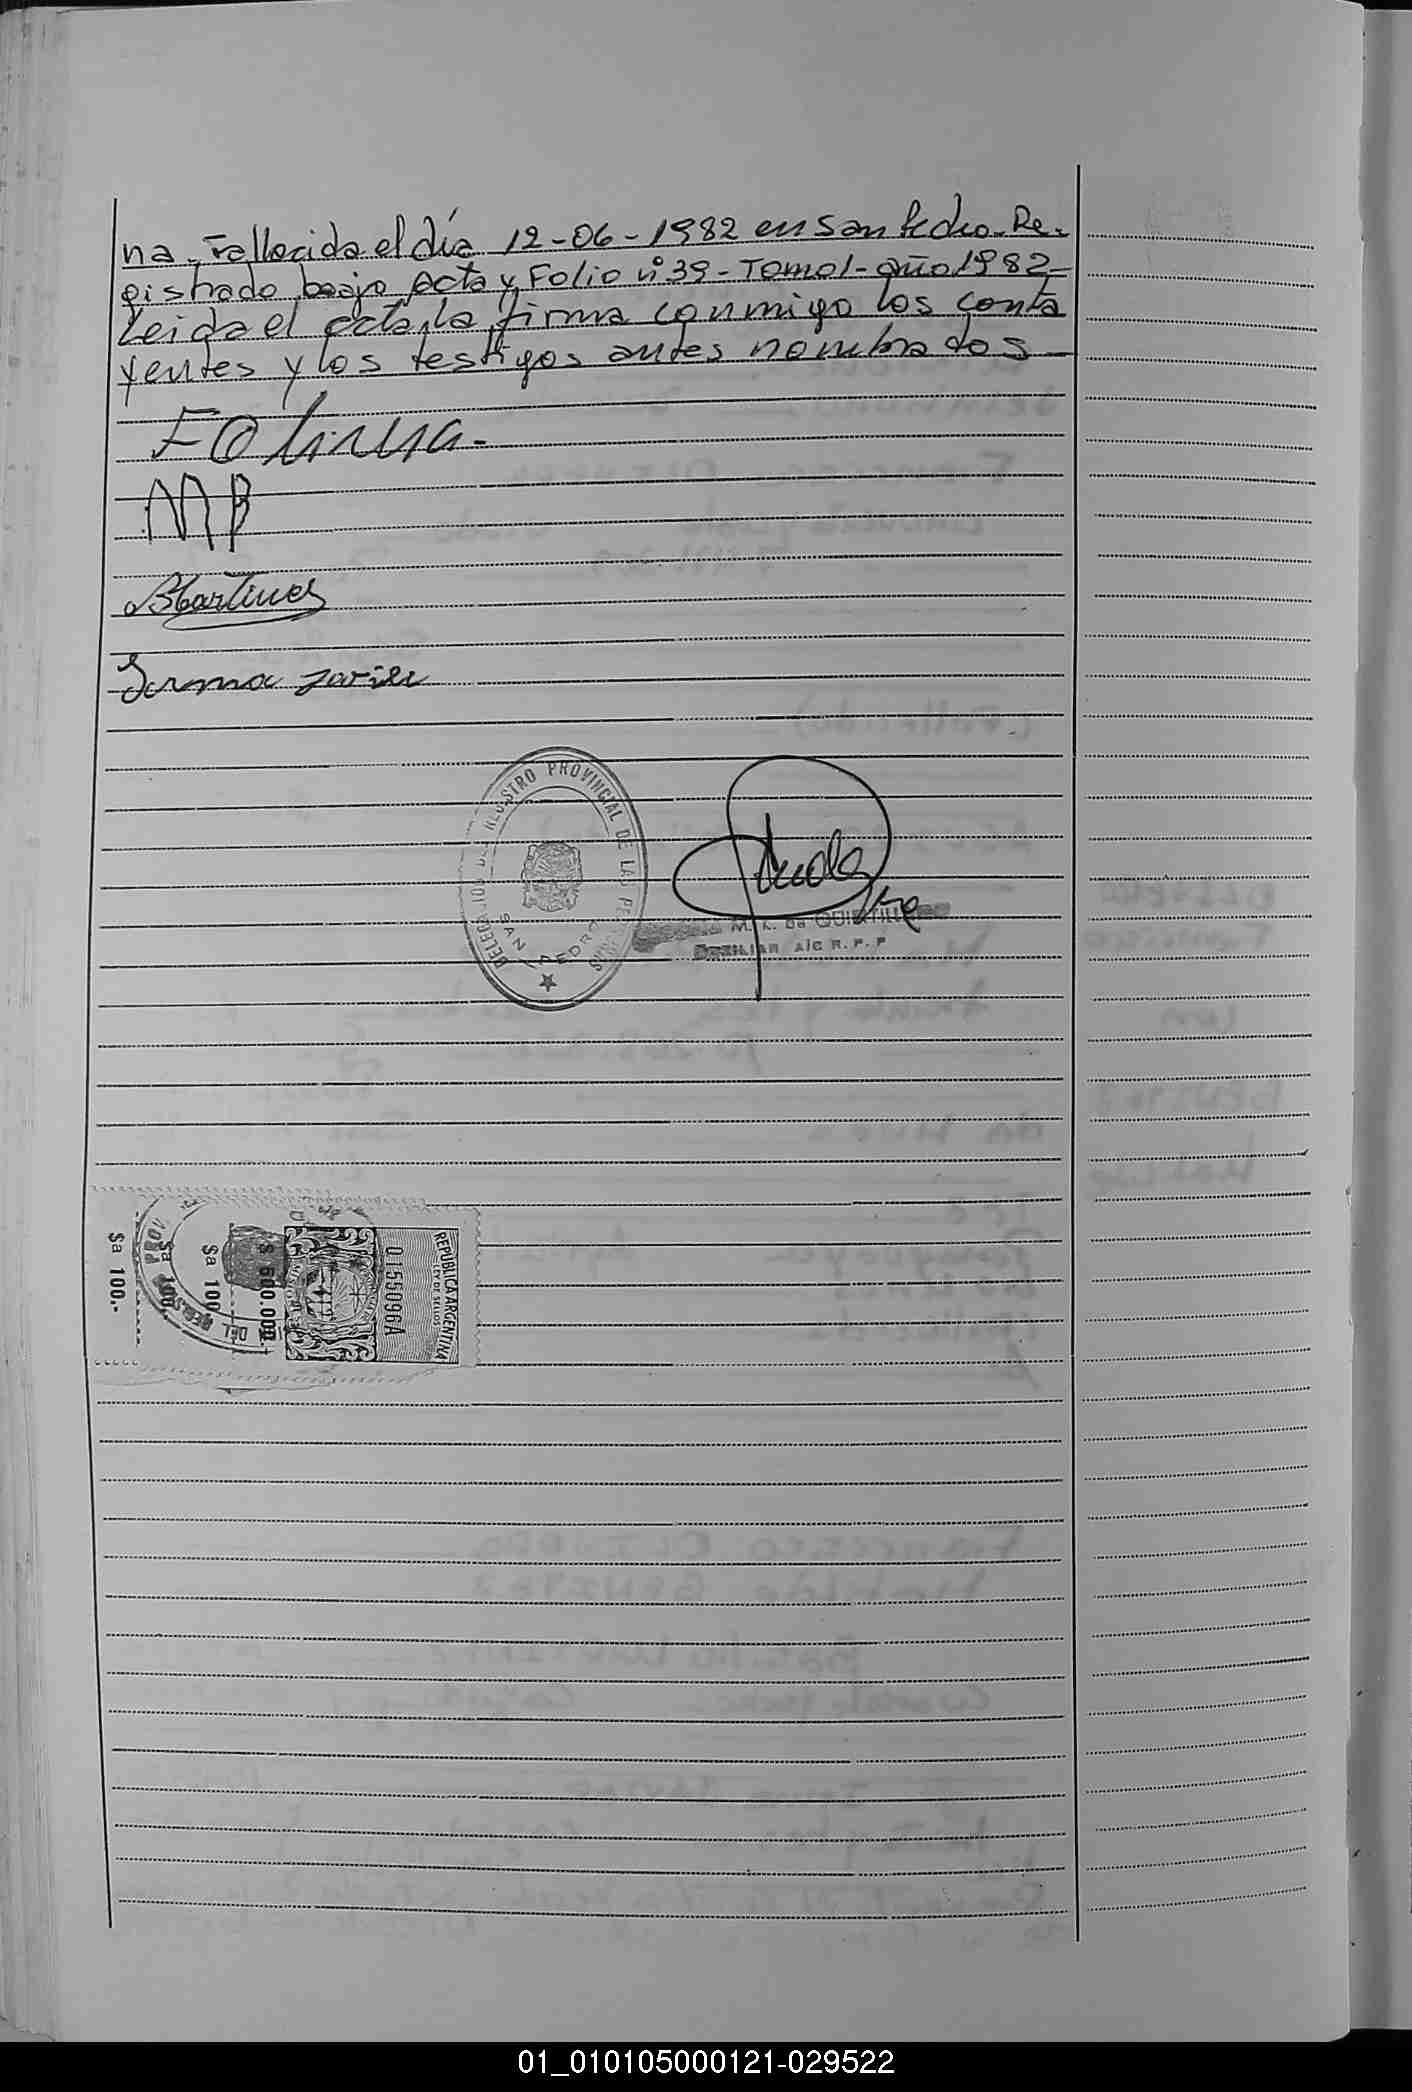 na, Fallecida el día 12-06-1982 en San Pedro. Re-
gistrado baajo Acta y Folio nº 39 - Tomo 1 - año 1982 -
Leida el acta, la firma conmigo los contra
yentes y los testigos antes nombrados
MB
BMartinez
Irma Javier
DELEGACION DEL REGISTRO PROVINCIAL DE LAS PERSONAS
SAN PEDRO
M. L. De QUINTILLERO
AUXILIAR A/C R. P. P
REPUBLICA ARGENTINA
LEY DE SELLOS
01556096A
$ 600.000.
$a 100
$a 100.
$a 100.-
01_010105000121-029522